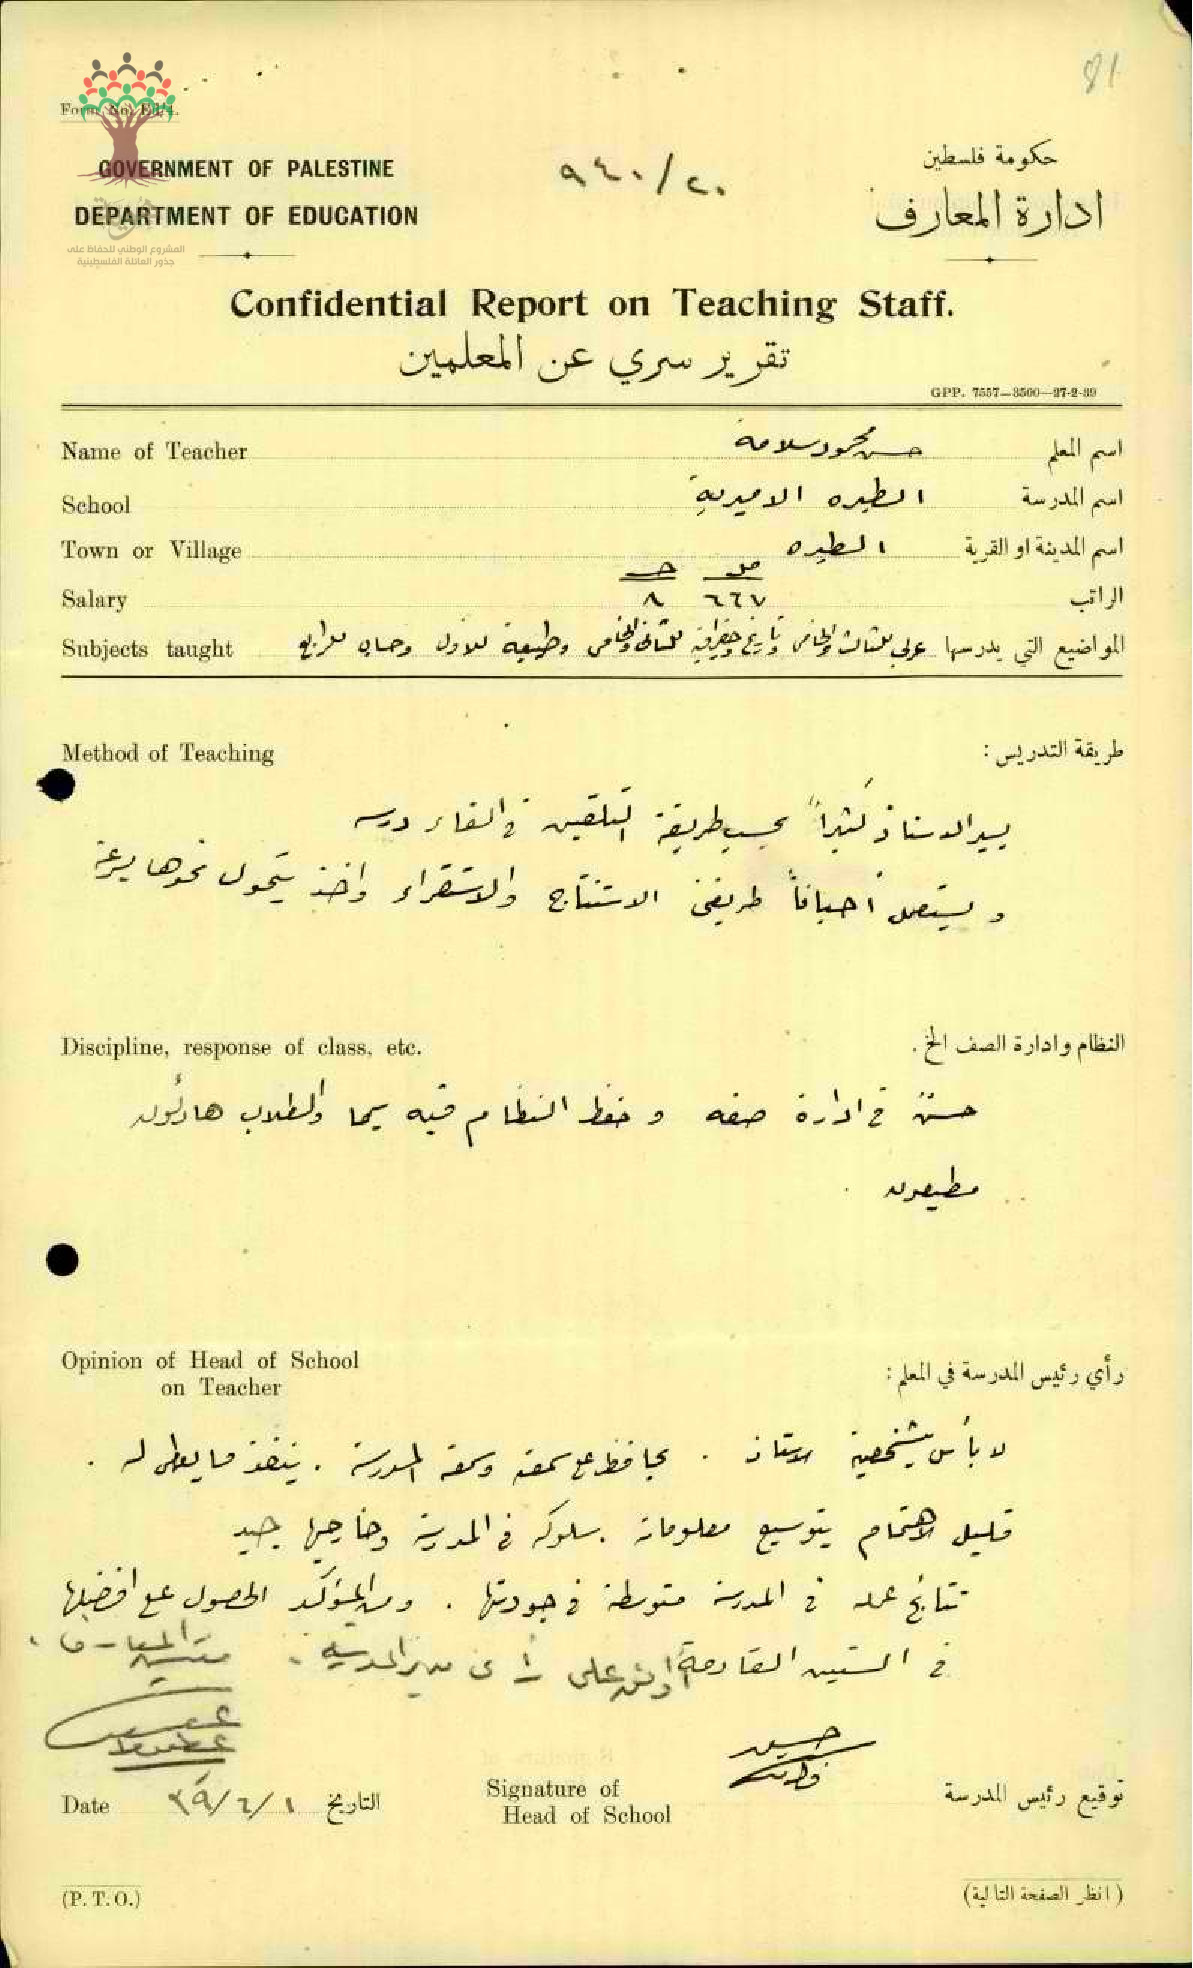 81
Form No. Ed/4.
GOVERNMENT OF PALESTINE
DEPARTMENT OF EDUCATION
٩٤٠/٢٠
حكومة فلسطين
ادارة المعارف
المشروع الوطني للحفاظ على
جذور العائلة الفلسطينية
Confidential Report on Teaching Staff.
تقرير سري عن المعلمين
GPP. 7557—3500—27-2-39
Name of Teacher حسن محمود سلامة اسم المعلم
School الطيره الاميرية اسم المدرسة
Town or Village الطيره اسم المدينة او القرية
مل جـ
Salary ٦٦٧ ٨ الراتب
Subjects taught المواضيع التي يدرسها عربي للثالث والخامس تاريخ وجغرافية للثاني والخامس وطبيعة للاول وحساب للرابع
Method of Teaching طريقة التدريس :
يسير الاستاذ كثيراً بحسب طريقة التلقين في القاء درسه
ويستعمل أحياناً طريقتي الاستنتاج والاستقراء واخذ يتحول نحوها بسرعة
Discipline, response of class, etc. النظام وادارة الصف الخ .
حسنٌ في ادارة صفه وحفظ النظام فيه سيما والطلاب هادئون
مطيعون .
Opinion of Head of School
on Teacher
رأي رئيس المدرسة في المعلم :
لا بأس بشخصية الاستاذ . يحافظ على سمعته وسمعة المدرسة . ينفذ ما يعطى له .
قليل الاهتمام بتوسيع معلوماته . سلوكه في المدرسة وخارجها جيد
نتائج عمله في المدرسة متوسطة في جودتها . ومن المؤكد الحصول على افضلها
في السنين القادمة
أوافق على رأي مدير المدرسة .
مفتش المعارف
Date ٣٩/٦/١ التاريخ
Signature of
Head of School
حسين
توقيع رئيس المدرسة
(P. T. O.)
( انظر الصفحة التالية )